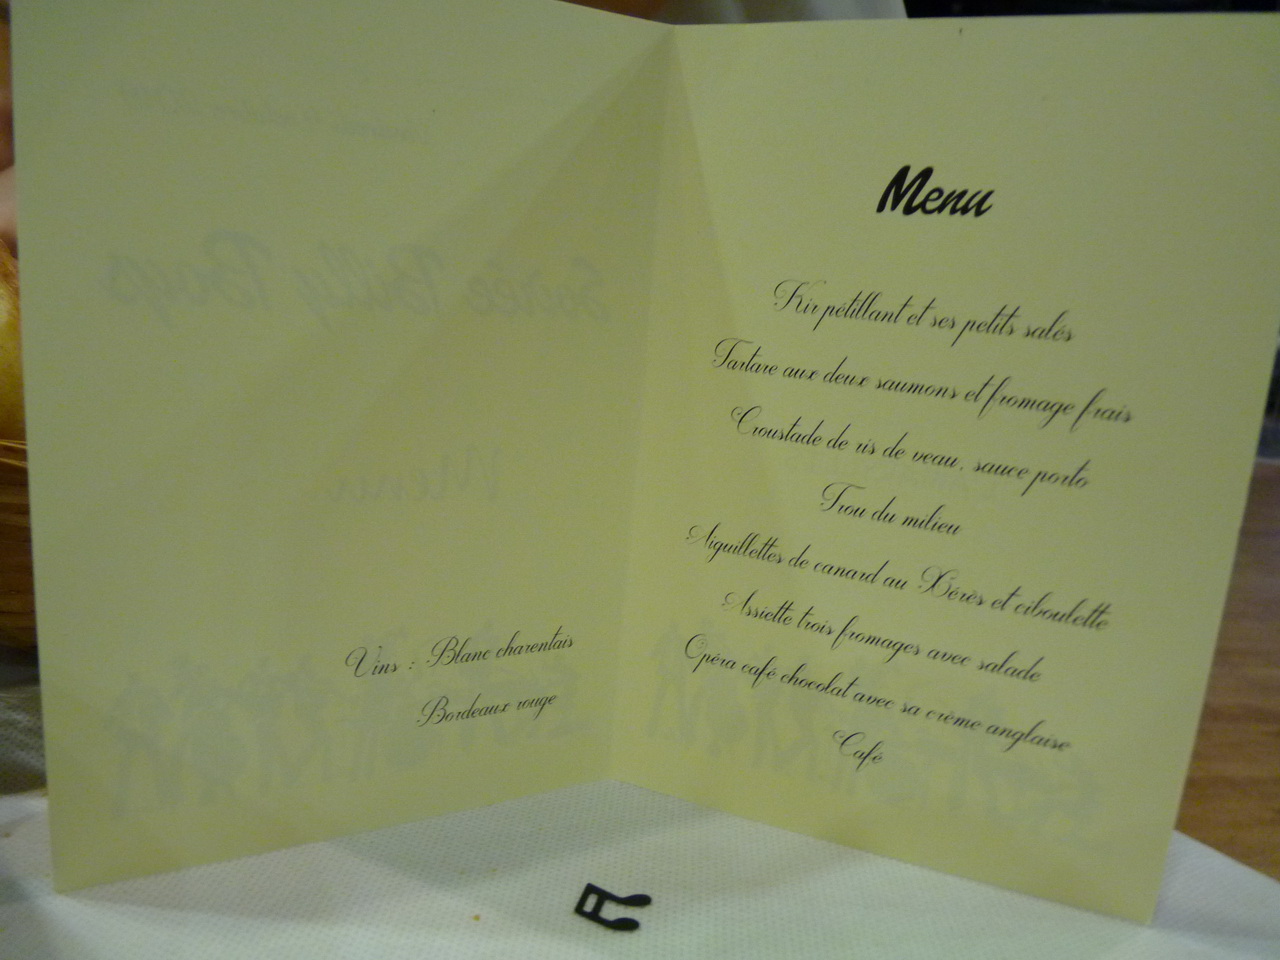 Soirée Billy Boys
Menu
Vins : Blanc charentais
Bordeaux rouge
Menu
Kir pétillant et ses petits salés
Tartare aux deux saumons et fromage frais
Croustade de ris de veau, sauce porto
Trou du milieu
Aiguillettes de canard au Xérès et ciboulette
Assiette trois fromages avec salade
Opéra café chocolat avec sa crème anglaise
Café